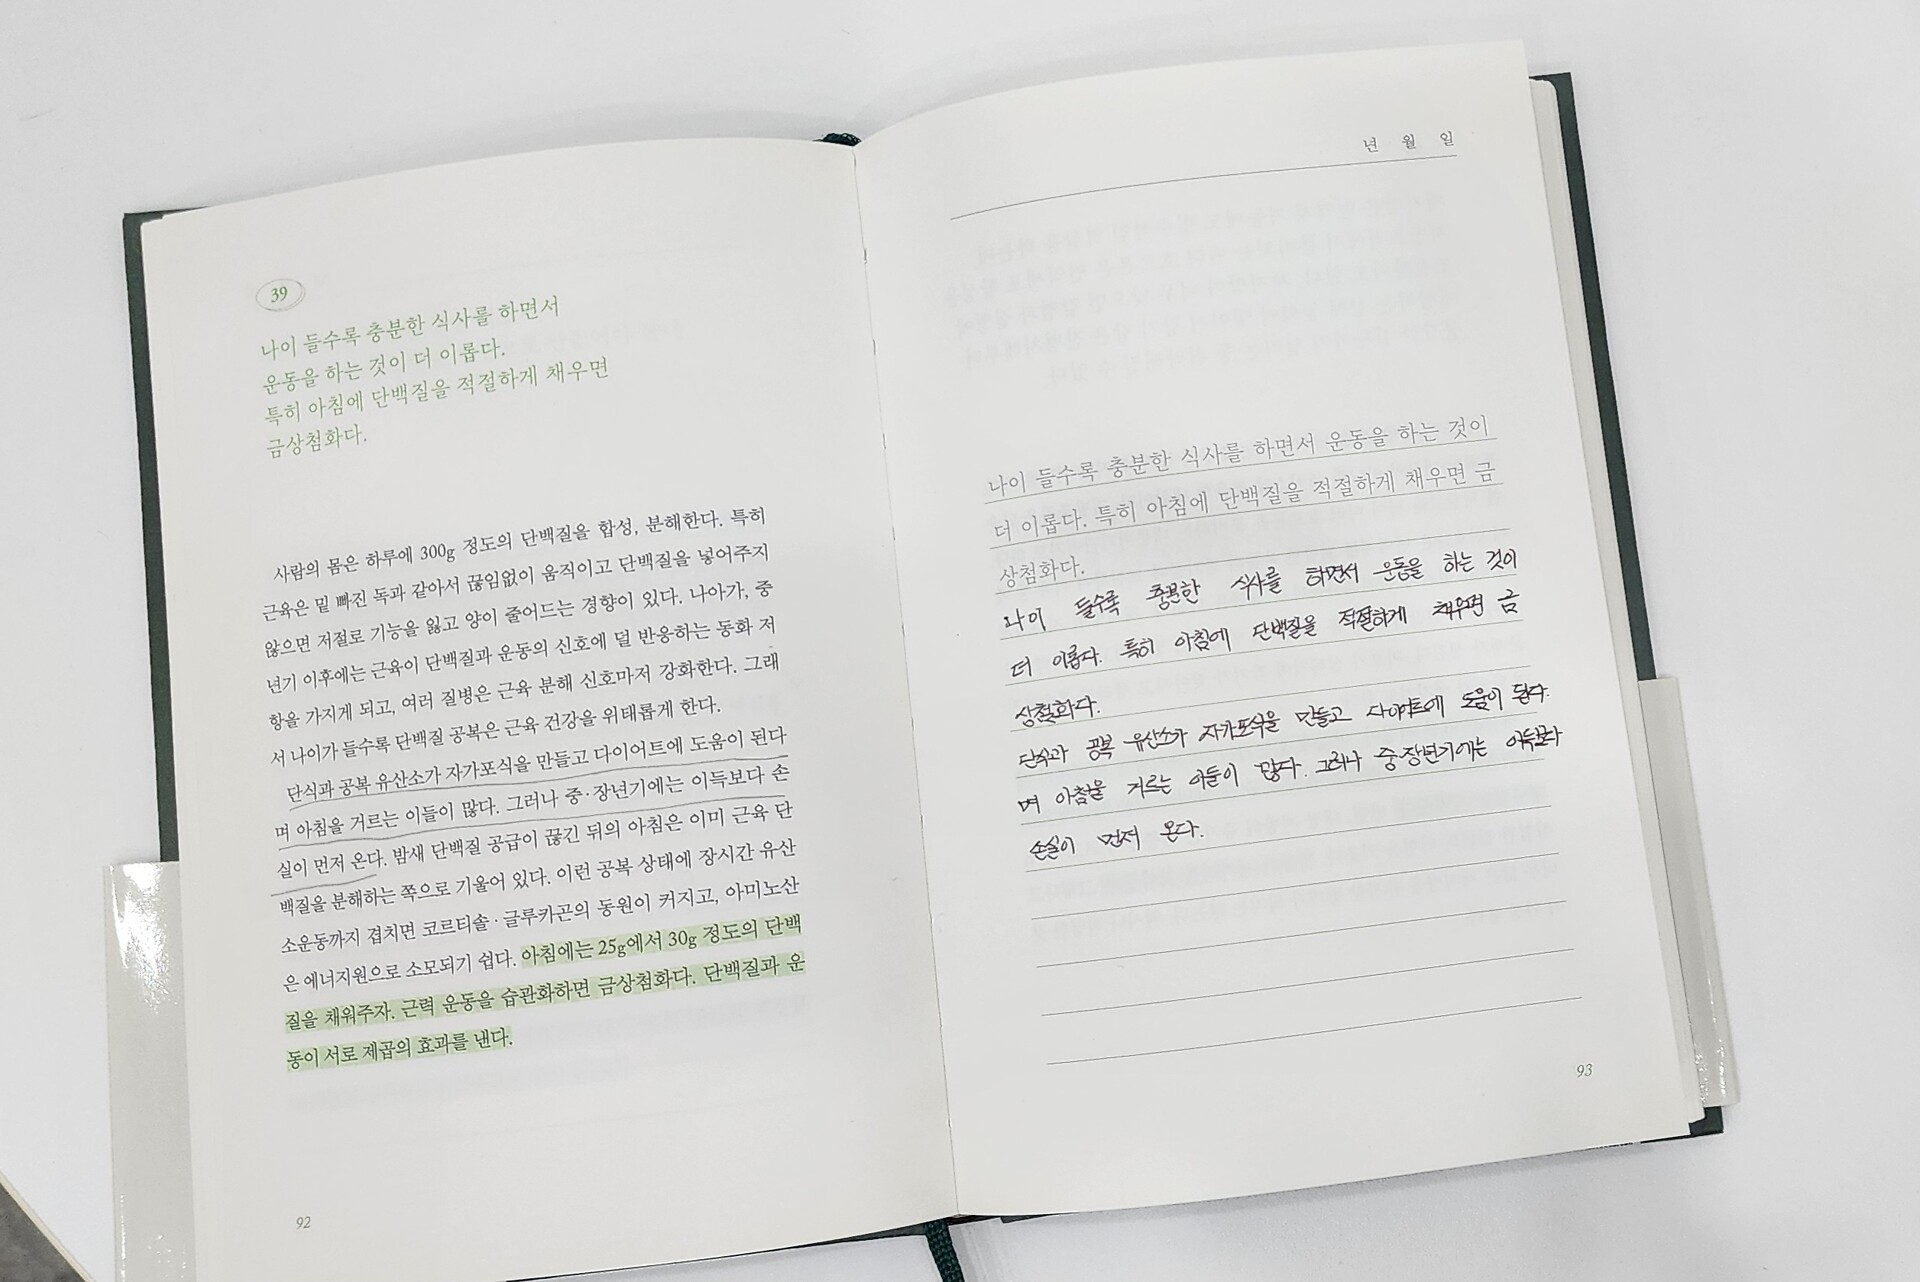 39
나이 들수록 충분한 식사를 하면서
운동을 하는 것이 더 이롭다.
특히 아침에 단백질을 적절하게 채우면
금상첨화다.
사람의 몸은 하루에 300g 정도의 단백질을 합성, 분해한다. 특히
근육은 밑 빠진 독과 같아서 끊임없이 움직이고 단백질을 넣어주지
않으면 저절로 기능을 잃고 양이 줄어드는 경향이 있다. 나아가, 중
년기 이후에는 근육이 단백질과 운동의 신호에 덜 반응하는 동화 저
항을 가지게 되고, 여러 질병은 근육 분해 신호마저 강화한다. 그래
서 나이가 들수록 단백질 공복은 근육 건강을 위태롭게 한다.
단식과 공복 유산소가 자가포식을 만들고 다이어트에 도움이 된다
며 아침을 거르는 이들이 많다. 그러나 중·장년기에는 이득보다 손
실이 먼저 온다. 밤새 단백질 공급이 끊긴 뒤의 아침은 이미 근육 단
백질을 분해하는 쪽으로 기울어 있다. 이런 공복 상태에 장시간 유산
소운동까지 겹치면 코르티솔·글루카곤의 동원이 커지고, 아미노산
은 에너지원으로 소모되기 쉽다. 아침에는 25g에서 30g 정도의 단백
질을 채워주자. 근력 운동을 습관화하면 금상첨화다. 단백질과 운
동이 서로 제곱의 효과를 낸다.
92
년 월 일
나이 들수록 충분한 식사를 하면서 운동을 하는 것이
더 이롭다. 특히 아침에 단백질을 적절하게 채우면 금
상첨화다.
나이 들수록 충분한 식사를 하면서 운동을 하는 것이
더 이롭다. 특히 아침에 단백질을 적절하게 채우면 금
상첨화다.
단식과 공복 유산소가 자가포식을 만들고 다이어트에 도움이 된다.
며 아침을 거르는 이들이 많다. 그러나 중·장년기에는 이득보다
손실이 먼저 온다.
93